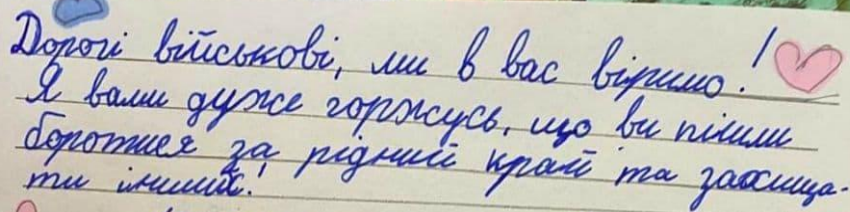 Дорогі військові, ми в вас віримо!
Я вами дуже горжусь, що ви пішли
боротися за рідний край та захища-
ти інших!